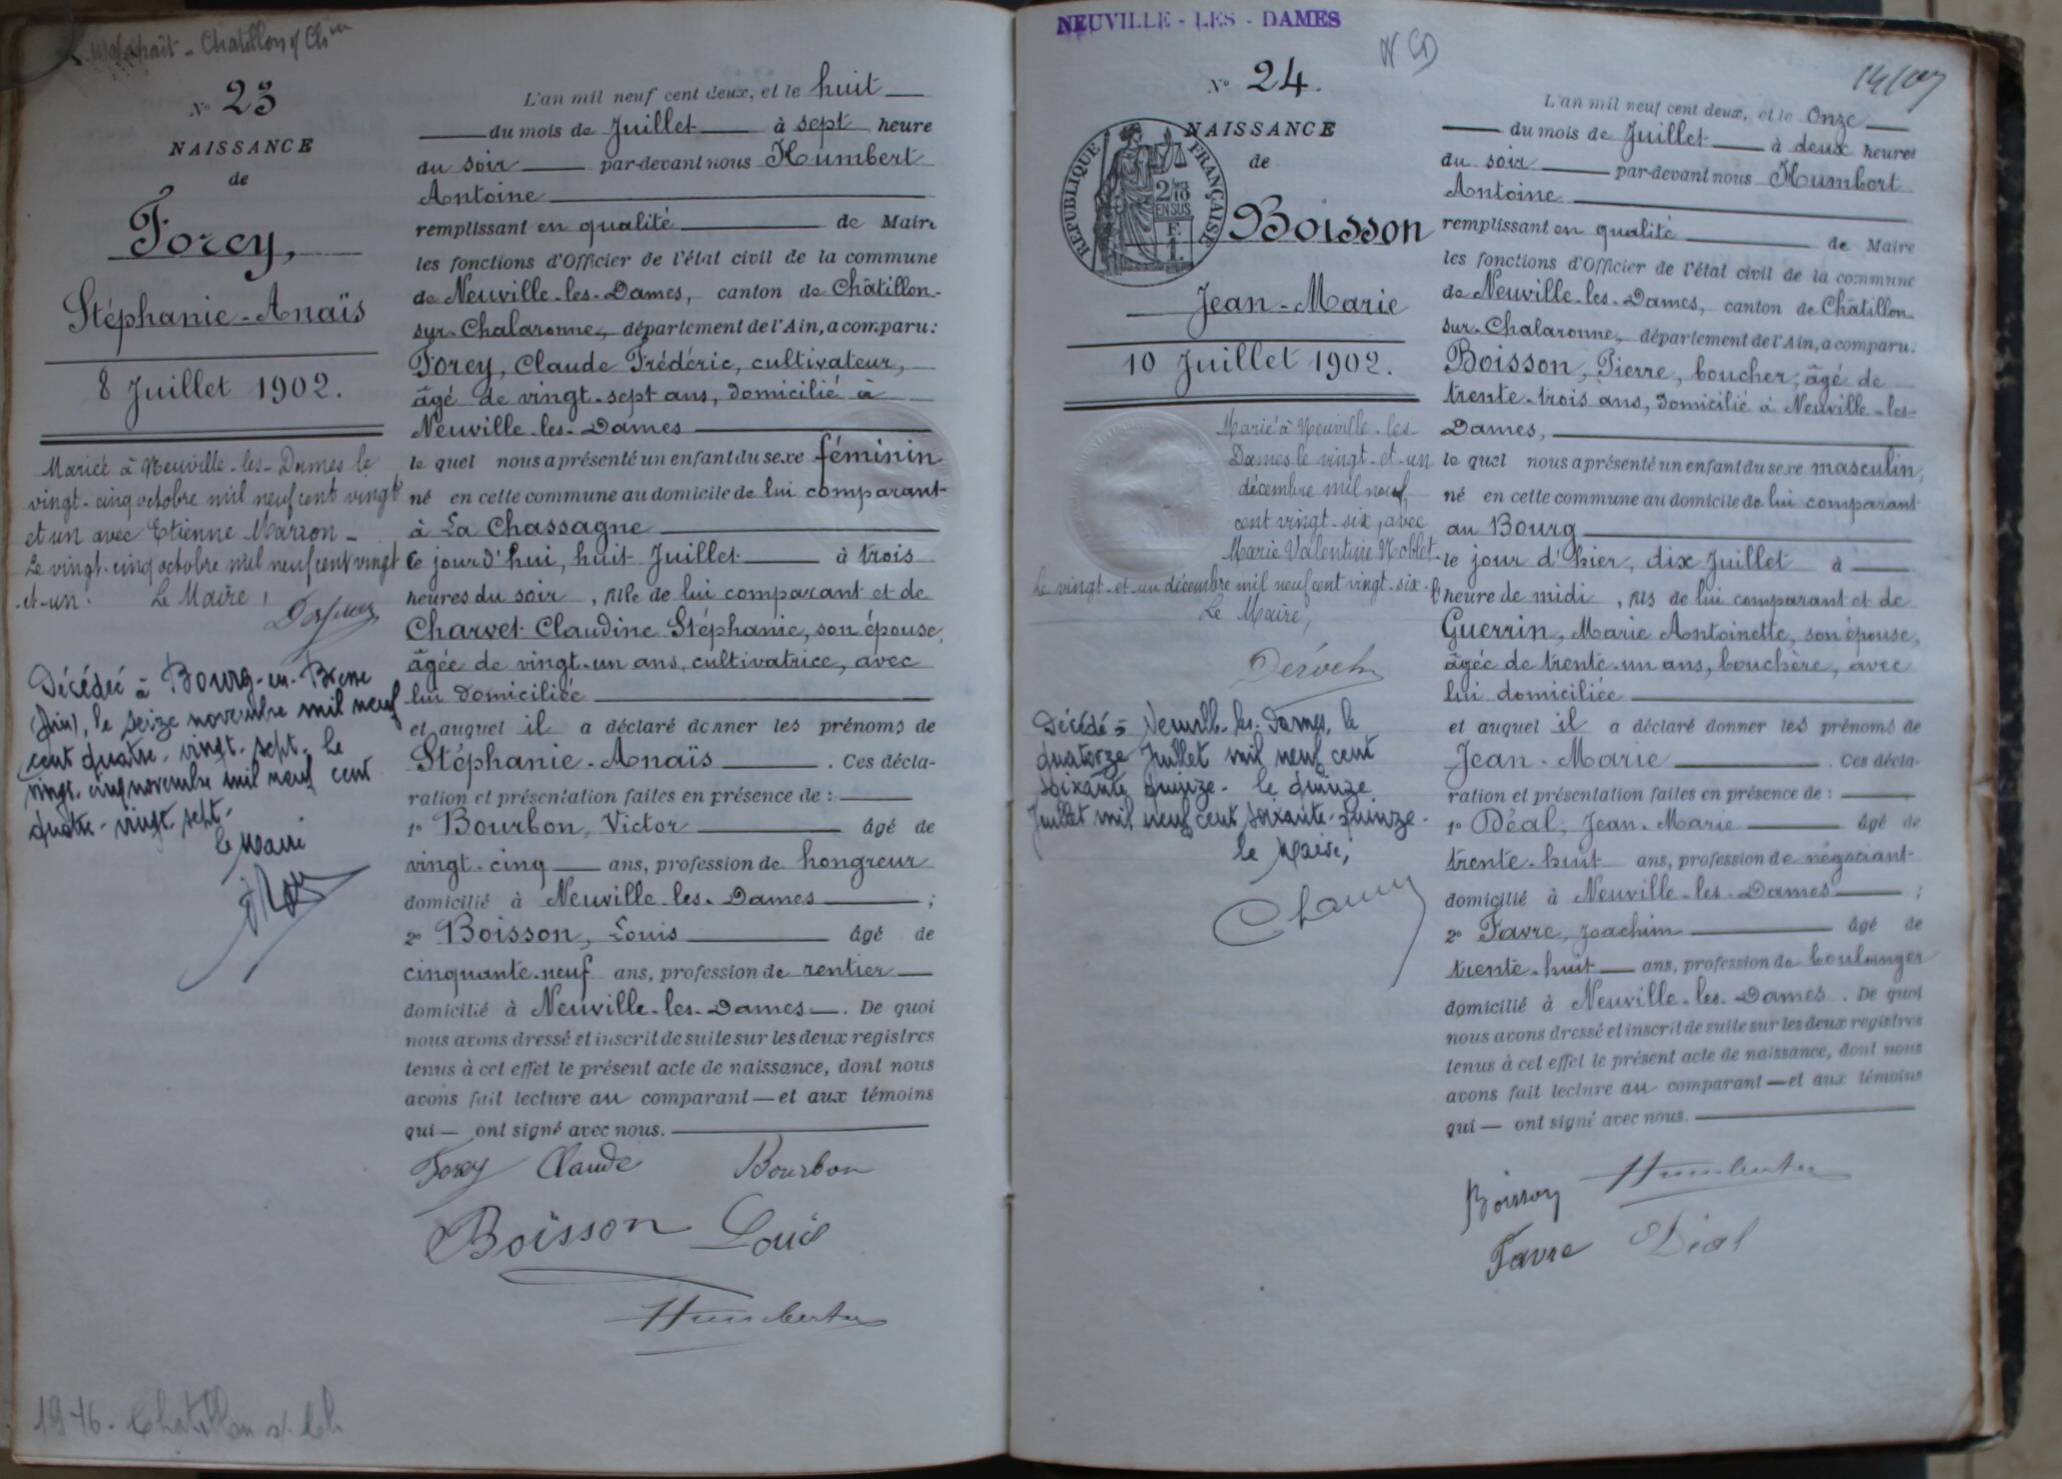 Châtillon s/ Ch
N° 23
NAISSANCE
de
Forey,
Stéphanie-Anaïs
8 Juillet 1902.
Mariée à Neuville-les-Dames le
vingt-cinq octobre mil neuf cent vingt
et un avec Etienne Marron -
Le vingt-cinq octobre mil neuf cent vingt
-et-un. Le Maire,
Décédée à Bourg-en-Bresse
(Ain), le seize novembre mil neuf
cent quatre-vingt-sept. le
vingt-cinq novembre mil neuf cent
quatre-vingt sept.
le Maire
1976. Chatillon s/. Ch
L'an mil neuf cent deux, et le huit
du mois de Juillet à sept heure
du soir par-devant nous Humbert
Antoine
remplissant en qualité de Maire
les fonctions d'Officier de l'état civil de la commune
de Neuville-les-Dames, canton de Châtillon-
sur-Chalaronne, département de l'Ain, a comparu:
Forey, Claude Frédéric, cultivateur,
âgé de vingt-sept ans, domicilié à
Neuville-les-Dames
le quel nous a présenté un enfant du sexe féminin
né en cette commune au domicile de lui comparant
à La Chassagne
ce jour d'hui, huit Juillet à trois
heures du soir, fille de lui comparant et de
Charvet Claudine Stéphanie, son épouse,
âgée de vingt-un ans, cultivatrice, avec
lui domiciliée
et auquel il a déclaré donner les prénoms de
Stéphanie-Anaïs. Ces décla-
ration et présentation faites en présence de :
1° Bourbon, Victor âgé de
vingt-cinq ans, profession de hongreur
domicilié à Neuville-les-Dames ;
2° Boisson, Louis âgé de
cinquante-neuf ans, profession de rentier
domicilié à Neuville-les-Dames. De quoi
nous avons dressé et inscrit de suite sur les deux registres
tenus à cet effet le présent acte de naissance, dont nous
avons fait lecture au comparant — et aux témoins
qui — ont signé avec nous.
Forey Claude Bourbon
Boisson Louis
Humbert
NEUVILLE - LES - DAMES
N° 24.
NAISSANCE
de
RÉPUBLIQUE FRANÇAISE
2/10
EN SUS
F.
1.
Boisson
Jean-Marie
10 Juillet 1902.
Marié à Neuville-les-
Dames le vingt-et-un
décembre mil neuf
cent vingt-six, avec
Marie Valentine Noblet-
Le vingt-et-un décembre mil neuf cent vingt-six.
Le Maire,
Décédé à Neuville-les-Dames, le
quatorze Juillet mil neuf cent
soixante quinze. le quinze
Juillet mil neuf cent soixante-quinze.
le Maire,
L'an mil neuf cent deux, et le Onze
du mois de Juillet à deux heures
du soir par-devant nous Humbert
Antoine
remplissant en qualité de Maire
les fonctions d'Officier de l'état civil de la commune
de Neuville-les-Dames, canton de Châtillon-
sur-Chalaronne, département de l'Ain, a comparu:
Boisson, Pierre, boucher, âgé de
trente-trois ans, domicilié à Neuville-les-
Dames,
le quel nous a présenté un enfant du sexe masculin,
né en cette commune au domicile de lui comparant
au Bourg
le jour d'hier, dix Juillet à
heure de midi, fils de lui comparant et de
Guerrin, Marie Antoinette, son épouse,
âgée de trente-un ans, bouchère, avec
lui domiciliée
et auquel il a déclaré donner les prénoms de
Jean-Marie. Ces décla-
ration et présentation faites en présence de :
1° Déal, Jean-Marie âgé de
trente-huit ans, profession de négociant
domicilié à Neuville-les-Dames ;
2° Favre, Joachim âgé de
trente-huit ans, profession de boulanger
domicilié à Neuville-les-Dames. De quoi
nous avons dressé et inscrit de suite sur les deux registres
tenus à cet effet le présent acte de naissance, dont nous
avons fait lecture au comparant — et aux témoins
qui — ont signé avec nous.
Boisson Humbert
Favre Déal